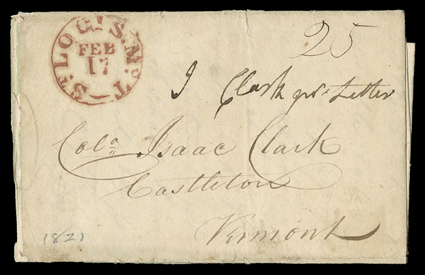 25
ST. LOUIS. M.T
FEB
17
Clark
Letter
Colo Isaac Clark
Castleton
Vermont
1821